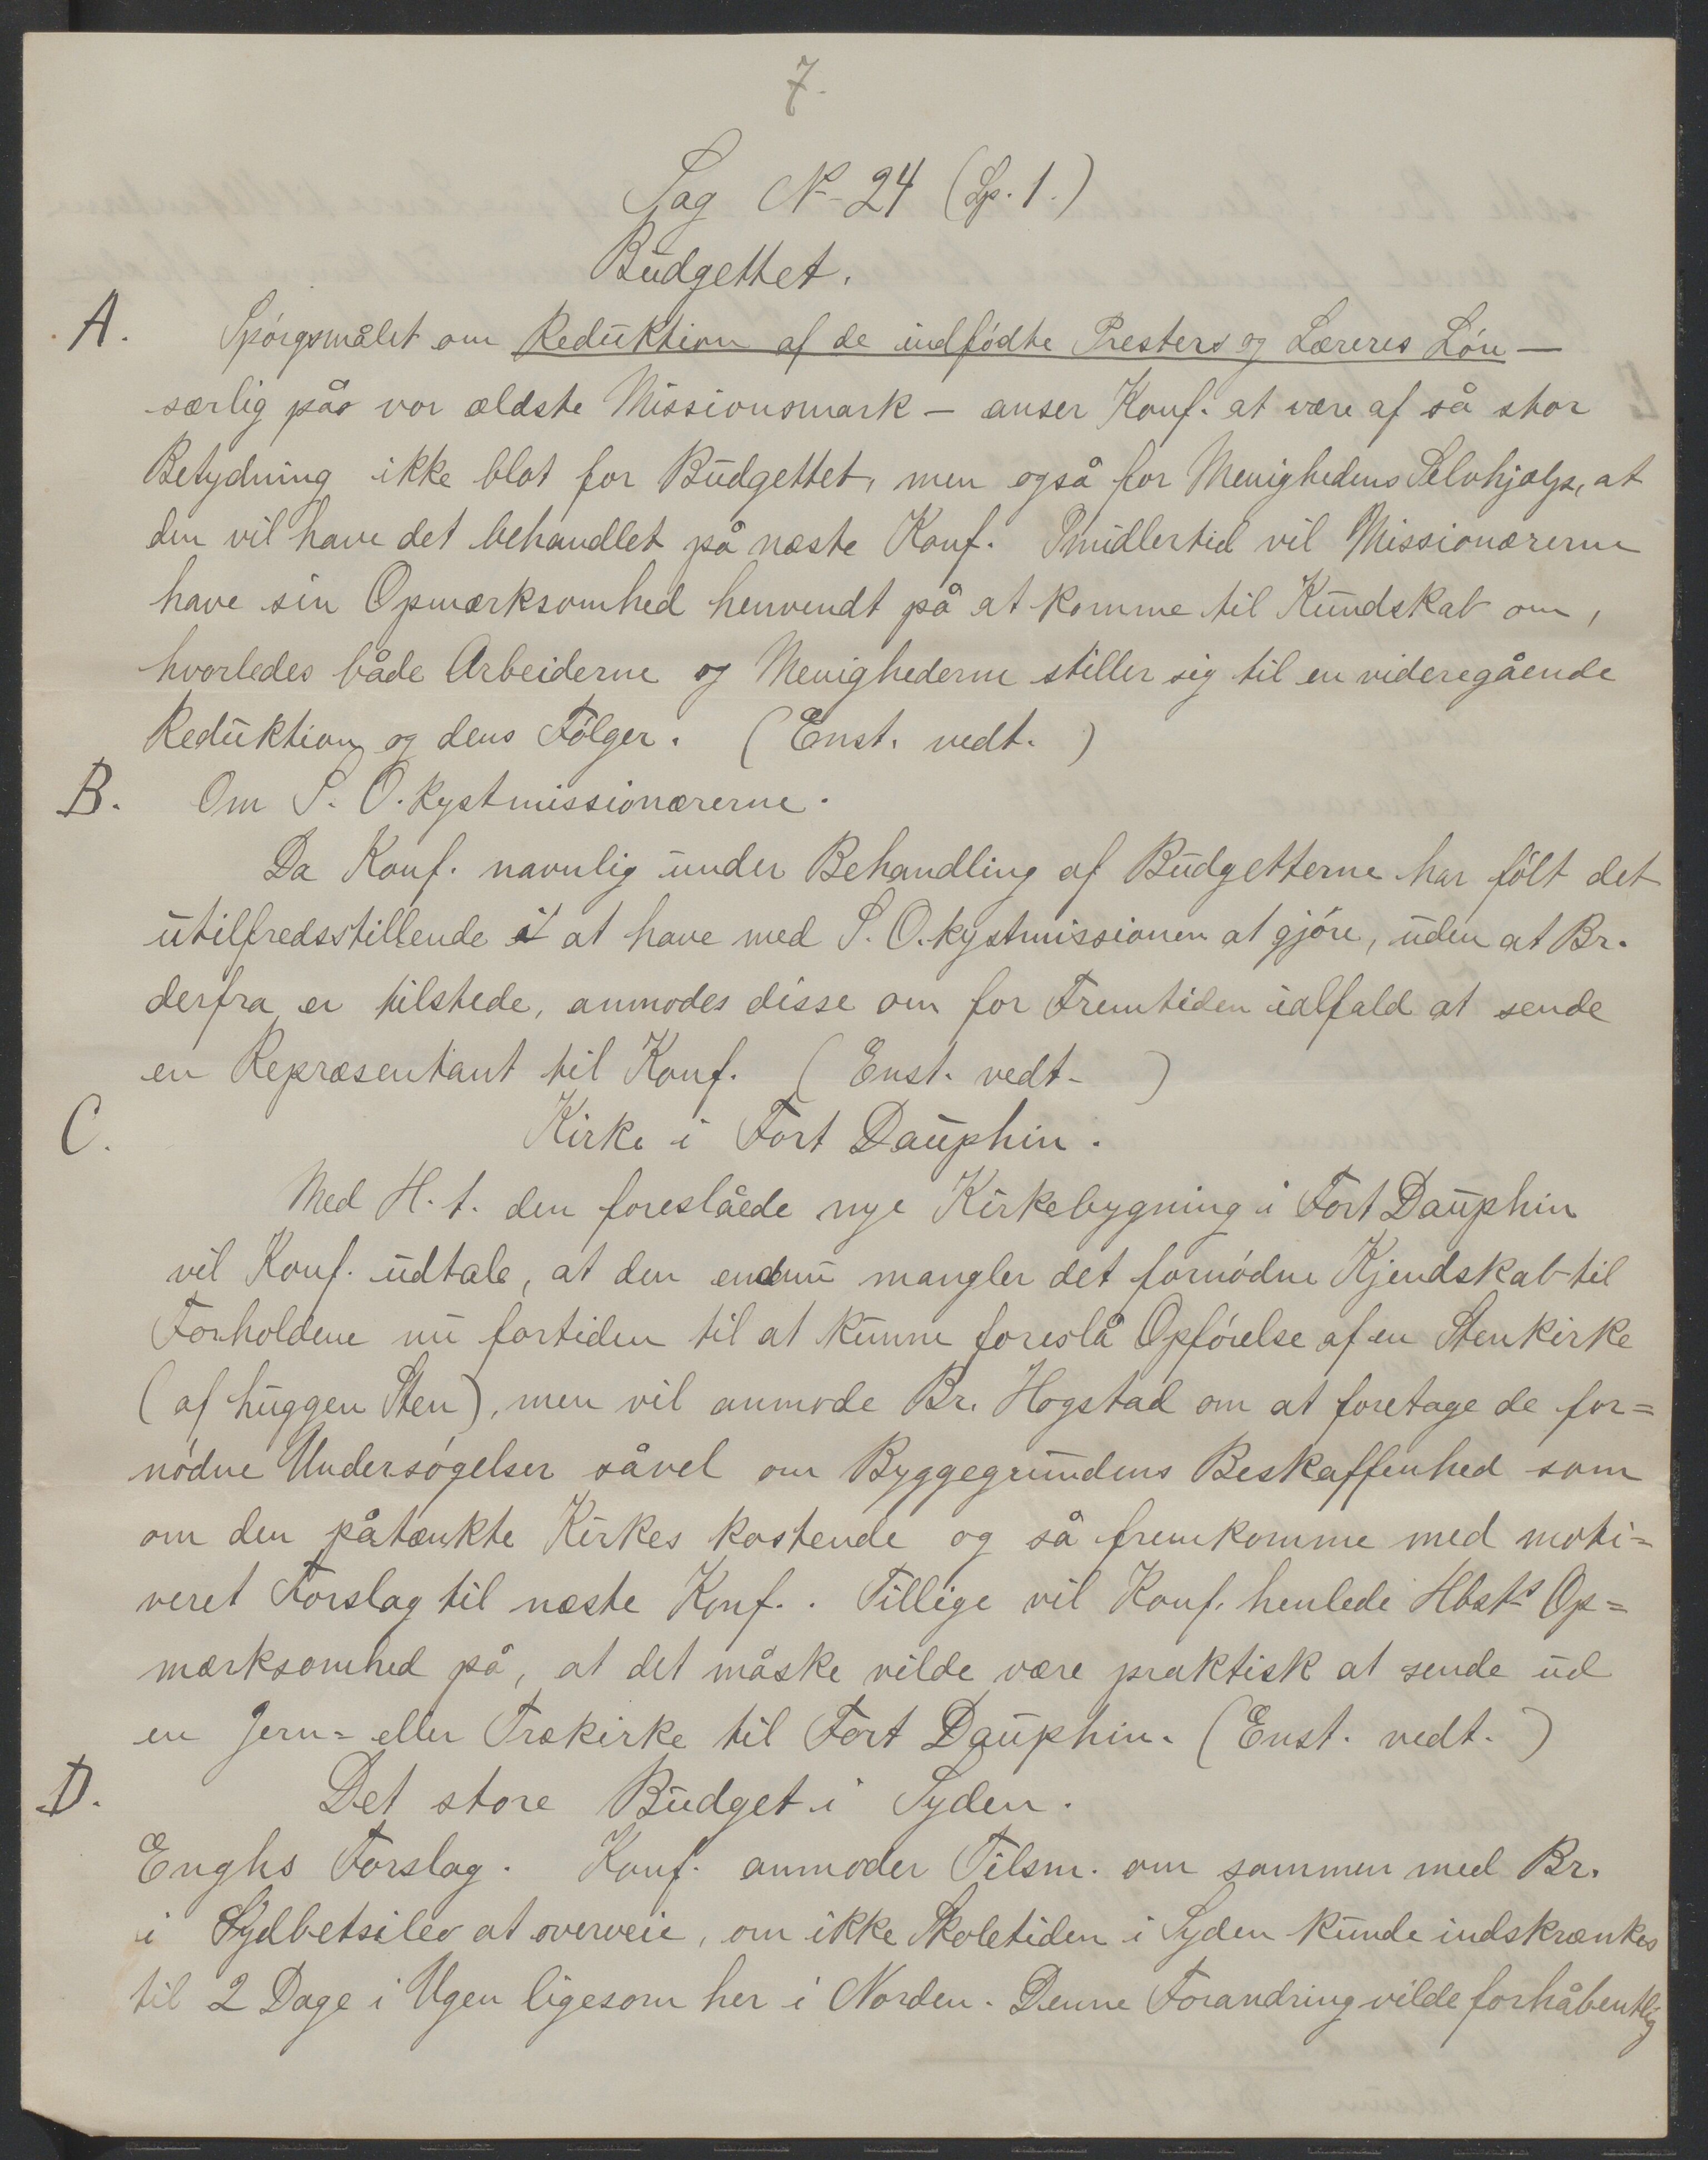 7.
Sag No 24 (Lp. 1.)
Budgettet.
A. Spörgsmålet om Reduktion af de indfödte Presters og Læreres Lön —
særlig på vor ældste Missionsmark — anser Konf. at være af så stor
Betydning ikke blot for Budgettet, men også for Menighedens Selvhjælp, at
den vil have det behandlet på næste Konf. Imidlertid vil Missionærerne
have sin Opmærksomhed henvendt på at komme til Kundskab om,
hvorledes både Arbeiderne og Menighederne stiller sig til en videregående
Reduktion og dens Fölger. (Enst. vedt.)
B. Om S. O. kystmissionærerne.
Da Konf. navnlig under Behandling af Budgetterne har fölt det
utilfredsstillende at have med S. O. kystmissionen at gjöre, uden at Br.
derfra er tilstede, anmodes disse om for Fremtiden ialfald at sende
en Repræsentant til Konf. (Enst. vedt-)
C. Kirke i Fort Dauphin.
Med H. t. den foreslåede nye Kirkebygning i Fort Dauphin
vil Konf. udtale, at den endnu mangler det fornödne Kjendskab til
Forholdene nu fortiden til at kunne foreslå Opförelse af en Stenkirke
(af huggen Sten), men vil anmode Br. Hogstad om at foretage de for=
nödne Undersögelser såvel om Byggegrundens Beskaffenhed som
om den påtænkte Kirkes kostende og så fremkomme med moti=
veret Forslag til næste Konf.. Tillige vil Konf. henlede Hbsts Op=
mærksomhed på, at det måske vilde være praktisk at sende ud
en Jern= eller Trækirke til Fort Dauphin. (Enst. vedt.)
D. Det store Budget i Syden.
Enghs Forslag. Konf. anmoder Tilsm. om sammen med Br.
i Sydbetsileo at overveie, om ikke Skoletiden i Syden kunde indskrænkes
til 2 Dage i Ugen ligesom her i Norden. Denne Forandring vilde forhåbentlig